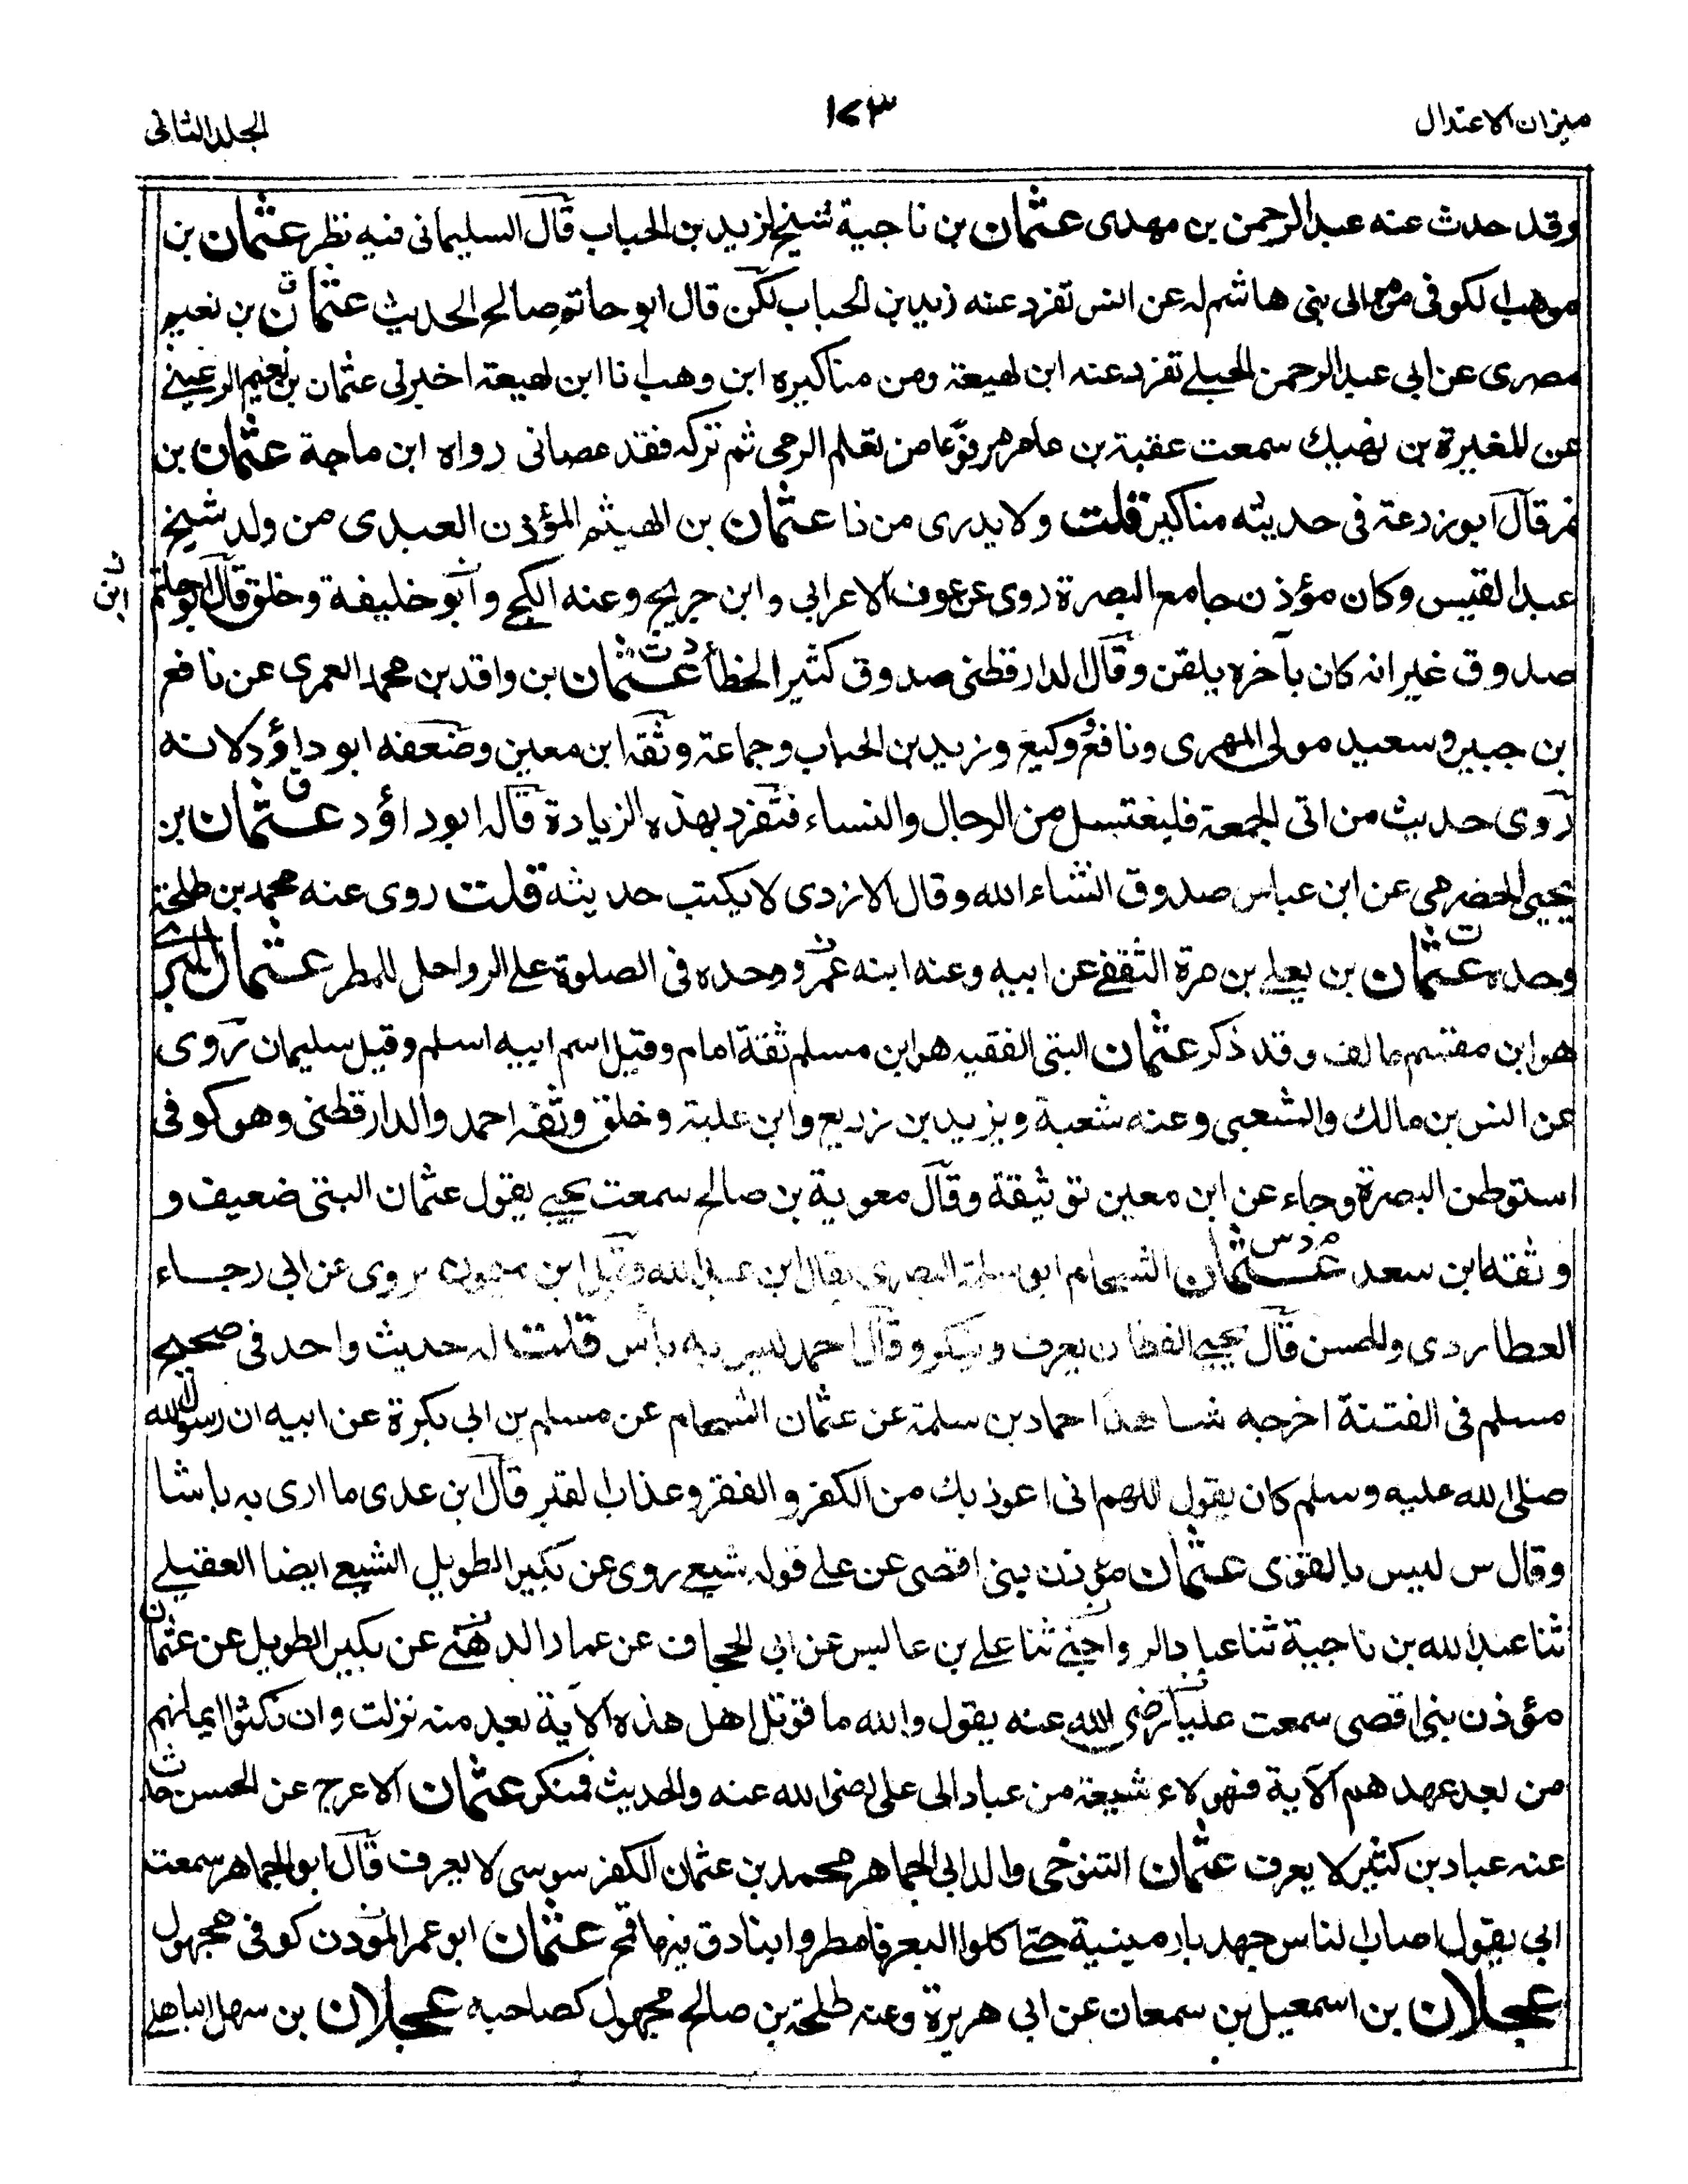 ميزان الاعتدال
١٧٣
الجلد الثانى
وقد حدث عنه عبد الرحمن بن مهدى عثمان بن ناجية شيخ لزيد بن الحباب قال السليمانى فيه نظر عثمان بن
موهب الكوفى مولى بنى هاشم له عن انس تفرد عنه زيد بن الحباب لكن قال ابو حاتم صالح الحديث عثمان ق بن نعيم
مصرى عن ابى عبد الرحمن الحبلے تفرد عنه ابن لهيعة ومن مناكيره ابن وهب انا ابن لهيعة اخبرنى عثمان بن نعيم الرعينے
عن المغيرة بن نهيك سمعت عقبة بن عامر مرفوعا من تعلم الرمى ثم تركه فقد عصانى رواه ابن ماجة عثمان بن
نمر قال ابو زرعة فى حديثه مناكير قلت ولا يدرى من ذا عثمان بن الهيثم المؤذن العبدى من ولد شيخ
عبد القيس وكان مؤذن جامع البصرة روى عن عوف الاعرابى وابن جريج وعنه الكجے وابو خليفة وخلق قال ابو حاتم
صدوق غير انه كان بآخره يلقن وقال الدارقطنى صدوق كثير الخطأ د ت عثمان بن واقد بن محمد العمرى عن نافع
بن جبير وسعيد مولى المهرى ونافع وكيع وزيد بن الحباب وجماعة وثقه ابن معين وضعفه ابو داؤد لانه
روى حديث من اتى الجمعة فليغتسل من الرجال والنساء فتفرد بهذه الزيادة قاله ابو داؤد ق عثمان بن
يحيى الحضرمى عن ابن عباس صدوق انشاء الله وقال الازدى لا يكتب حديثه قلت روى عنه محمد بن طلحة
وحده ت عثمان بن يعلے بن مرة الثقفے عن ابيه وعنه ابنه عمرو وحده فى الصلوة على الرواحل للمطر عثمان البرى
هو ابن مقسم تالف وقد ذكر عثمان البتى الفقيه هو ابن مسلم ثقة امام وقيل اسم ابيه اسلم وقيل سليمان روى
عن انس بن مالك والشعبى وعنه شعبة ويزيد بن زريع وابن علية وخلق وثقه احمد والدارقطنى وهو كوفى
استوطن البصرة وجاء عن ابن معين توثيقه وقال معوية بن صالح سمعت يحيے يقول عثمان البتى ضعيف و
وثقه ابن سعد م د س عثمان الشحام ابو سلمة البصرى يقال ابن عبد الله وقيل ابن ميمون يروى عن ابى رجاء
العطاردى والحسن قال يحيى القطان يعرف وينكر وقال احمد ليس به بأس قلت له حديث واحد فى صحيح
مسلم فى الفتنة اخرجه شاهدا حماد بن سلمة عن عثمان الشحام عن مسلم بن ابى بكرة عن ابيه ان رسول الله
صلى الله عليه وسلم كان يقول اللهم انى اعوذ بك من الكفر والفقر وعذاب القبر قال ابن عدى ما ارى به باسا
وقال س ليس بالقوى عثمان مؤذن بنى اقصى عن على قوله شيعے روى عن بكير الطويل الشيعے ايضا العقيلے
ثنا عبد الله بن ناجية ثنا عباد الرواجنے ثنا علے بن عابس عن ابى الجحاف عن عمار الدهنے عن بكير الطويل عن عثمان
مؤذن بنى اقصى سمعت عليا رضى الله عنه يقول والله ما قوتل اهل هذه الآية بعد منذ نزلت وان نكثوا ايمانهم
من بعد عهدهم الآية فهؤلاء شيعة من عباد الى على رضى الله عنه والحديث فمنكر عثمان الاعرج عن الحسن حدث
عنه عباد بن كثير لا يعرف عثمان التنوخى والد ابى الجماهر محمد بن عثمان الكفرسوسى لا يعرف قال ابو الجماهر سمعت
ابى يقول اصاب الناس جهد بارمينية حتے اكلوا البعر فامطروا بنادق فيها قمح عثمان ابو عمر المؤذن كوفى مجهول
عجلان بن اسمعيل بن سمعان عن ابى هريرة وعنه طلحة بن صالح مجهول كصاحبه عجلان بن سهل الباهلے